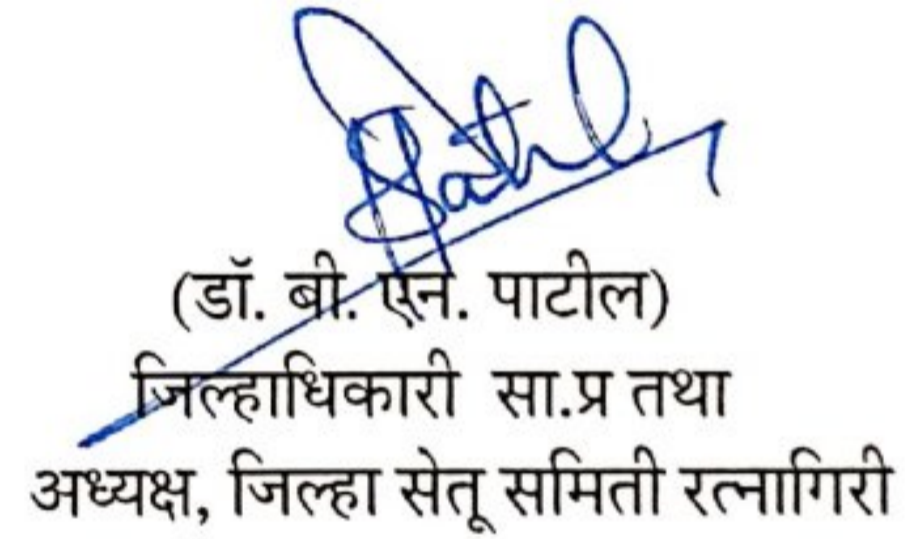 (डॉ. बी. एन. पाटील)
जिल्हाधिकारी सा.प्र तथा
अध्यक्ष, जिल्हा सेतू समिती रत्नागिरी